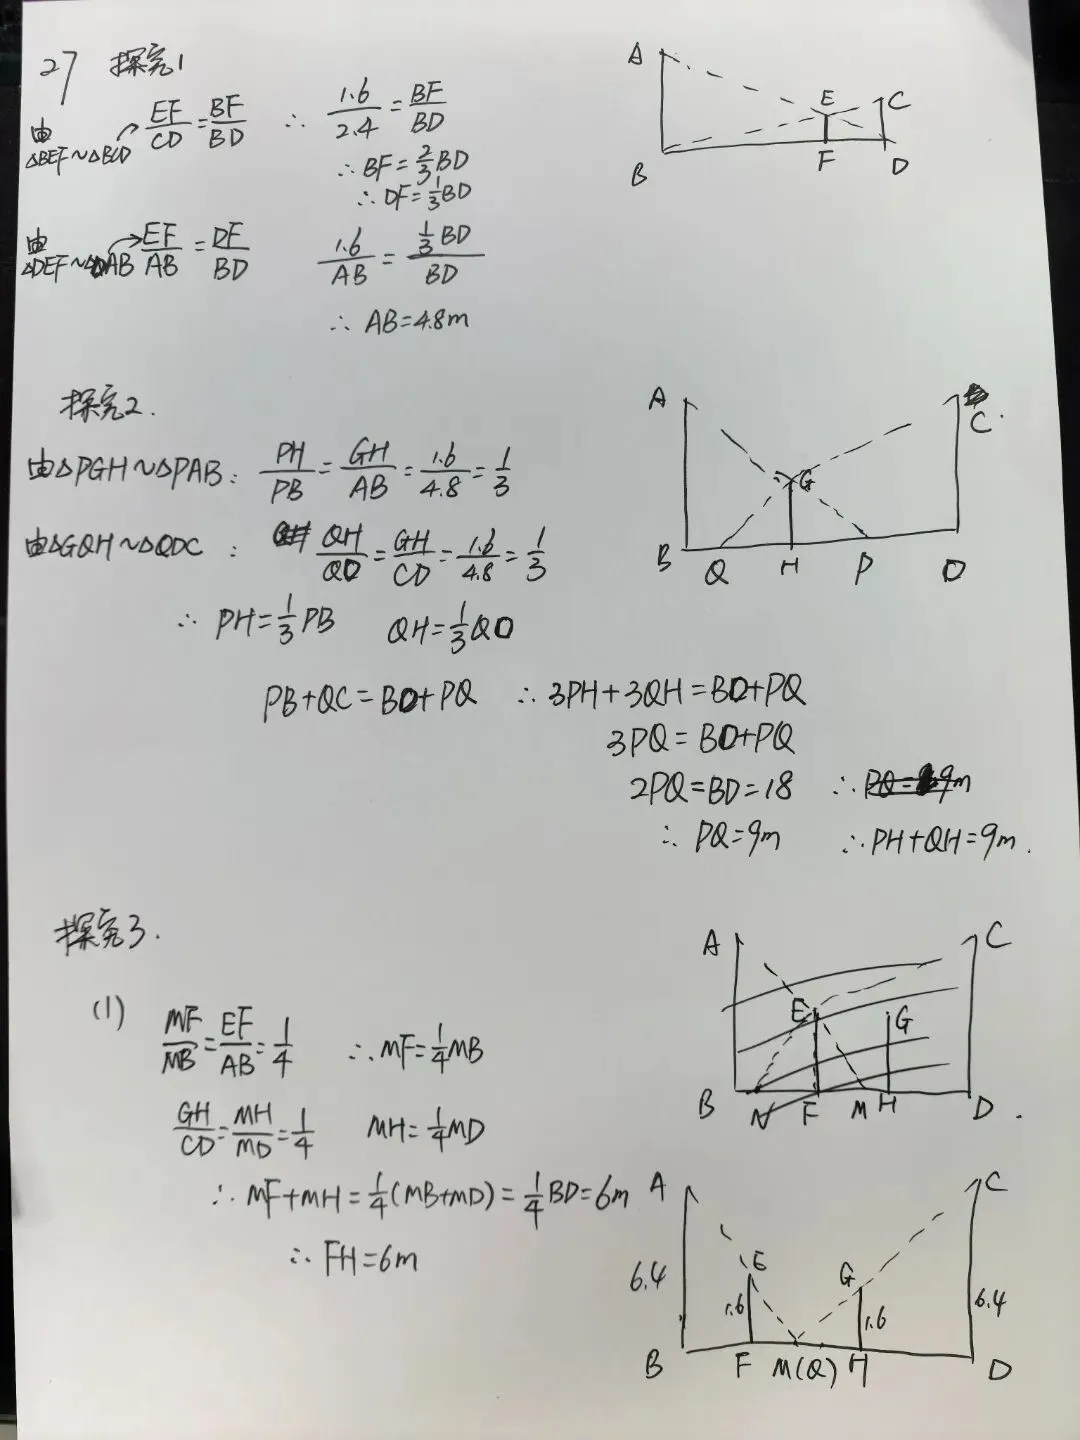 27 探究1
由△BEF∽△BCD EF/CD=BF/BD ∴ 1.6/2.4=BF/BD
∴BF=2/3BD
∴DF=1/3BD
由△DEF∽△DAB EF/AB=DF/BD 1.6/AB=1/3BD/BD
∴ AB=4.8m
A
E
C
B
F
D
探究2.
由△PGH∽△PAB: PH/PB=GH/AB=1.6/4.8=1/3
由△GQH∽△QDC: QH/QD=GH/CD=1.6/4.8=1/3
∴ PH=1/3PB QH=1/3QD
PB+QC=BD+PQ ∴3PH+3QH=BD+PQ
3PQ=BD+PQ
2PQ=BD=18 ∴
∴ PQ=9m ∴PH+QH=9m.
A
C
G
B Q H P D
探究3.
(1) MF/MB=EF/AB=1/4 ∴MF=1/4MB
GH/CD=MH/MD=1/4 MH=1/4MD
∴MF+MH=1/4(MB+MD)=1/4BD=6m
∴FH=6m
A
C
E
G
B N F M H D
A
C
E
G
6.4
1.6
1.6
6.4
B F M(Q) H D